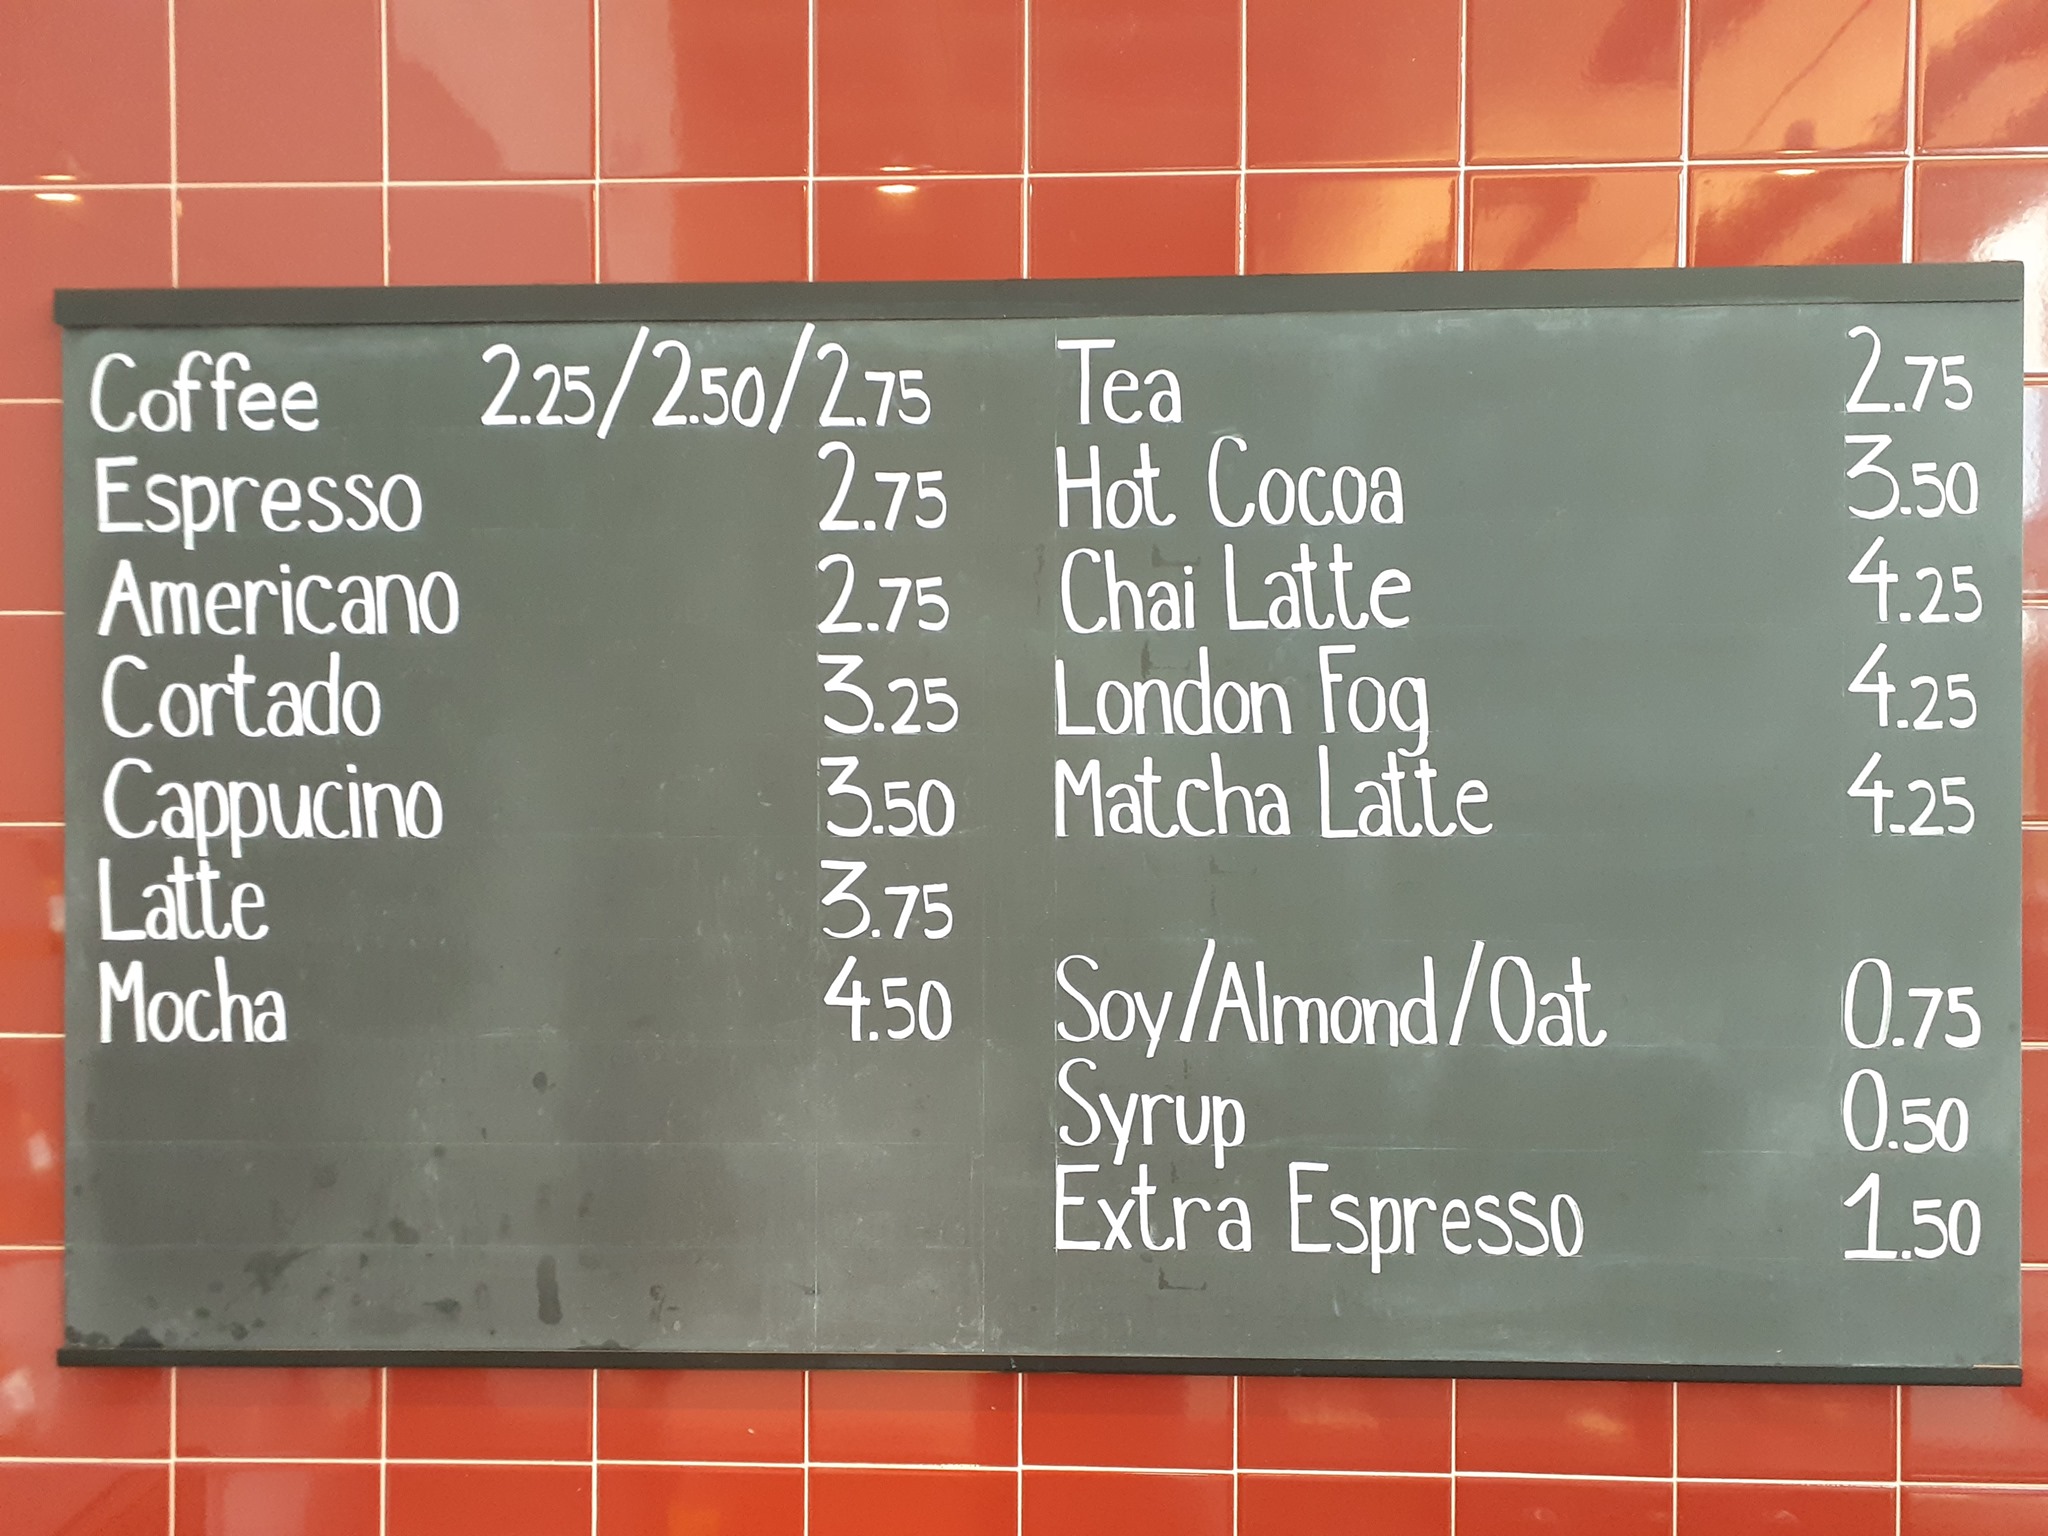 Coffee 2.25/2.50/2.75
Espresso 2.75
Americano 2.75
Cortado 3.25
Cappucino 3.50
Latte 3.75
Mocha 4.50
Tea 2.75
Hot Cocoa 3.50
Chai Latte 4.25
London Fog 4.25
Matcha Latte 4.25
Soy/Almond/Oat 0.75
Syrup 0.50
Extra Espresso 1.50